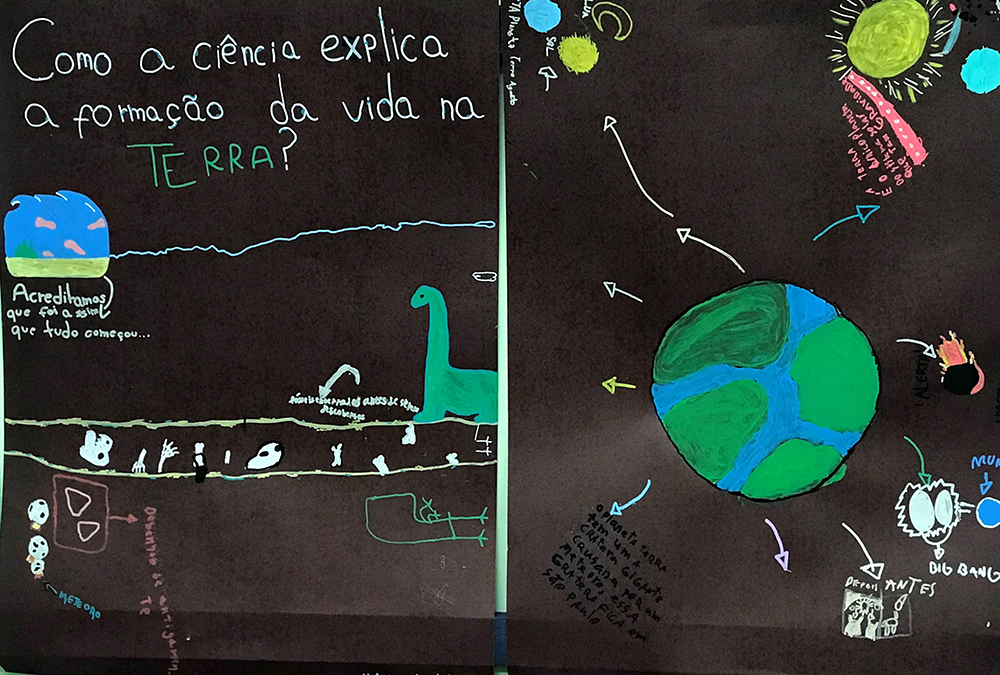 Como a ciência explica
a formação da vida na
TERRA?
Acreditamos
que foi assim
que tudo começou...
descobertos
METEORO
Desenhos de
LUA
SOL
Planeta Terra
E-A TERRA
O ÚNICO PLANETA
DO SISTEMA SOLAR
QUE TEM
GRAVIDADE
ALERTA
MUN
BIG BANG
DEPOIS ANTES
O PLANETA TERRA
TEM UM A
CRATERA GIGANTE
CAUSADA POR UM
METEITO ESSA
GRATERA FICA em
SÃO PAULO